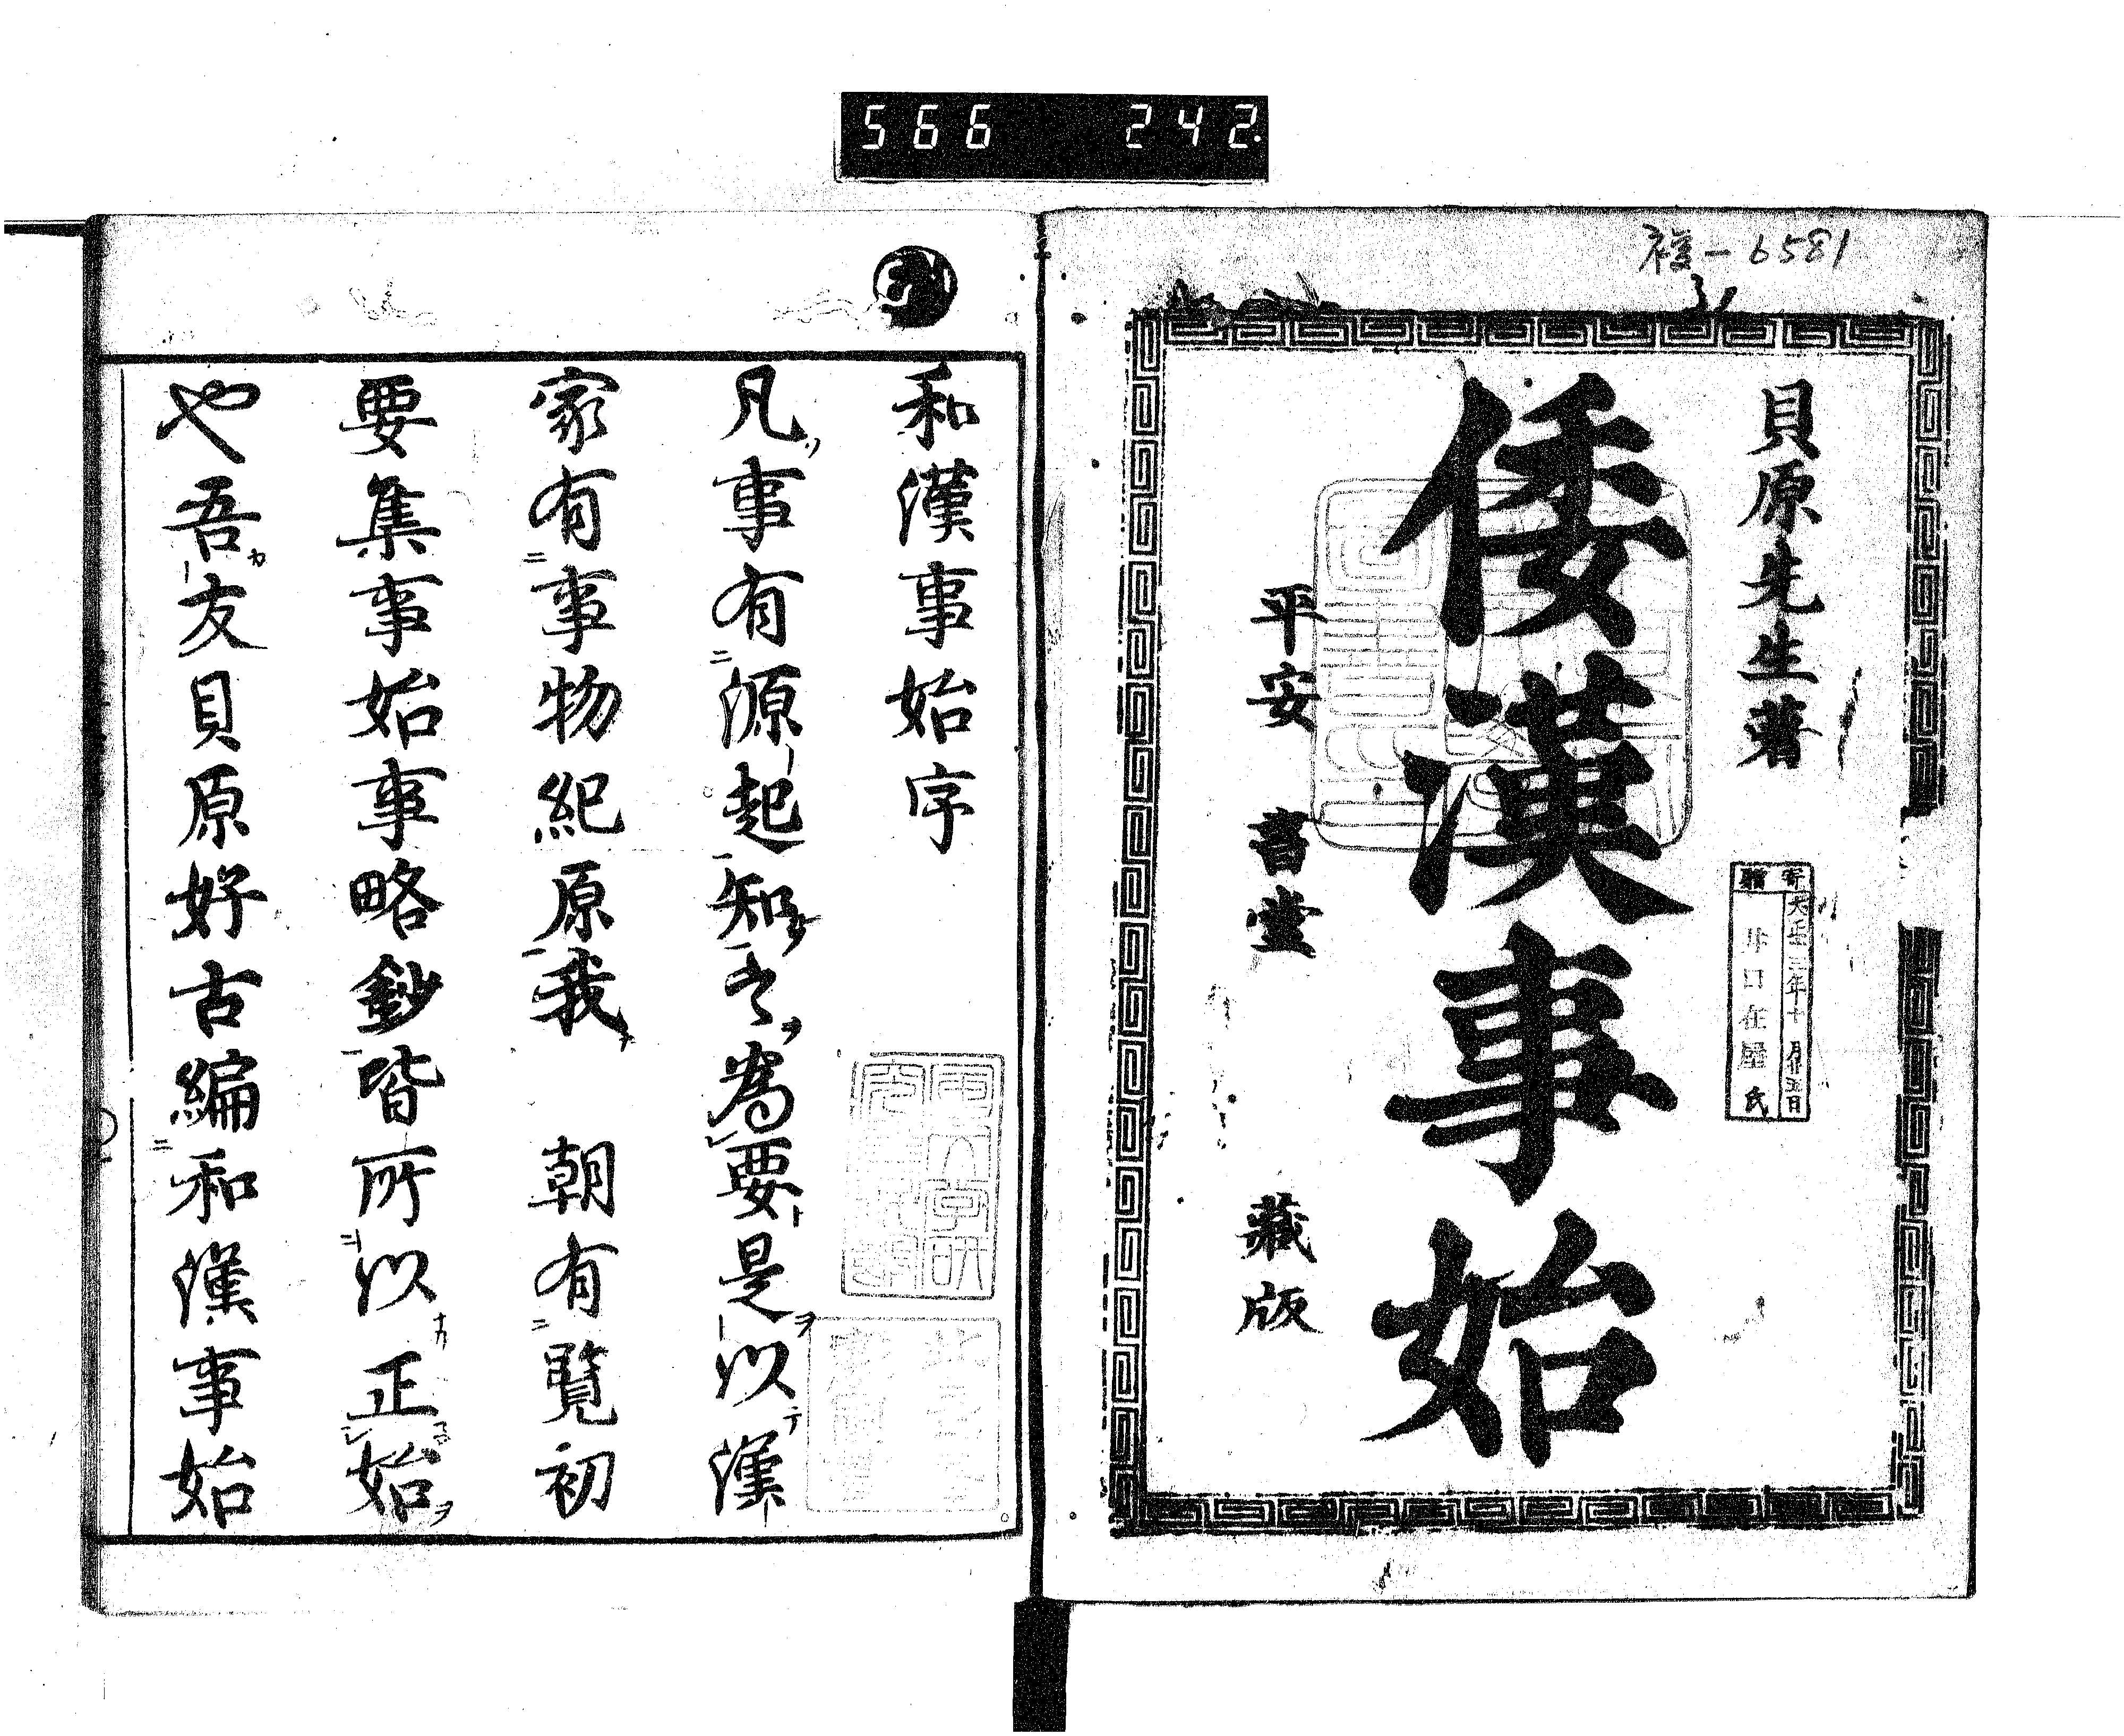 566 242
複-6581
貝原先生著
倭漢事始
平安 書堂 藏版
寄贈
大正三年十月廿五日
井口在屋氏
和漢事始序
凡事有源起知之為要是以漢
家有事物紀原我 朝有覽初
要集事始事略鈔皆所以正始
也吾友貝原好古編和漢事始